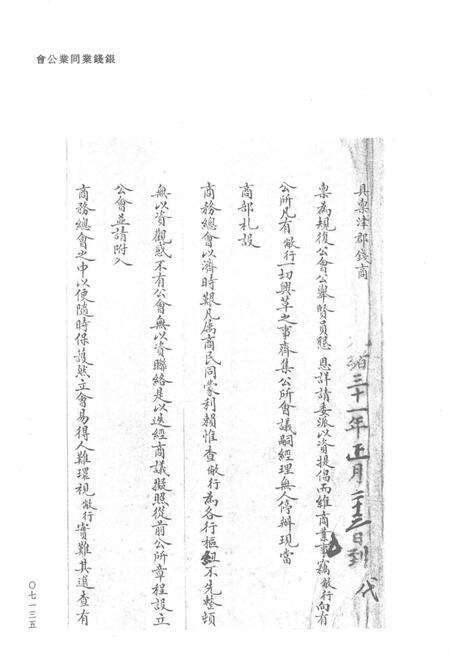 銀錢業同業公會
具稟津郡錢商
光緒三十一年正月二十三日到 代
稟為規復公會公舉賢員懇 恩詳請委派以資提倡而維商業事竊敝行向有
公所凡有敝行一切興革之事齊集公所會議嗣經理無人停辦現當
商部札設
商務總會以濟時艱凡屬商民同蒙利賴惟查敝行為各行樞紐不先整頓
無以資觀感不有公會無以資聯絡是以迭經商議擬照從前公所章程設立
公會並請附入
商務總會之中以便隨時保護然立會易得人難環視敝行實難其選查有
〇七一三五